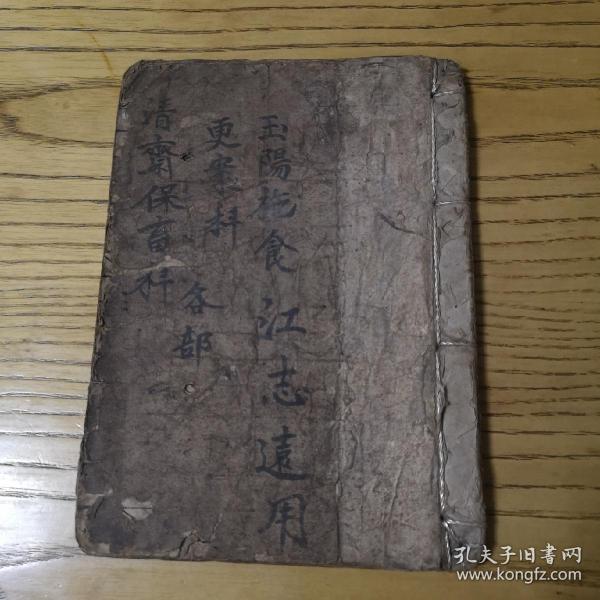 玉陽施食 江志遠用
更案科 各部
清齋保苗科
孔夫子旧书网
www.kongfz.com